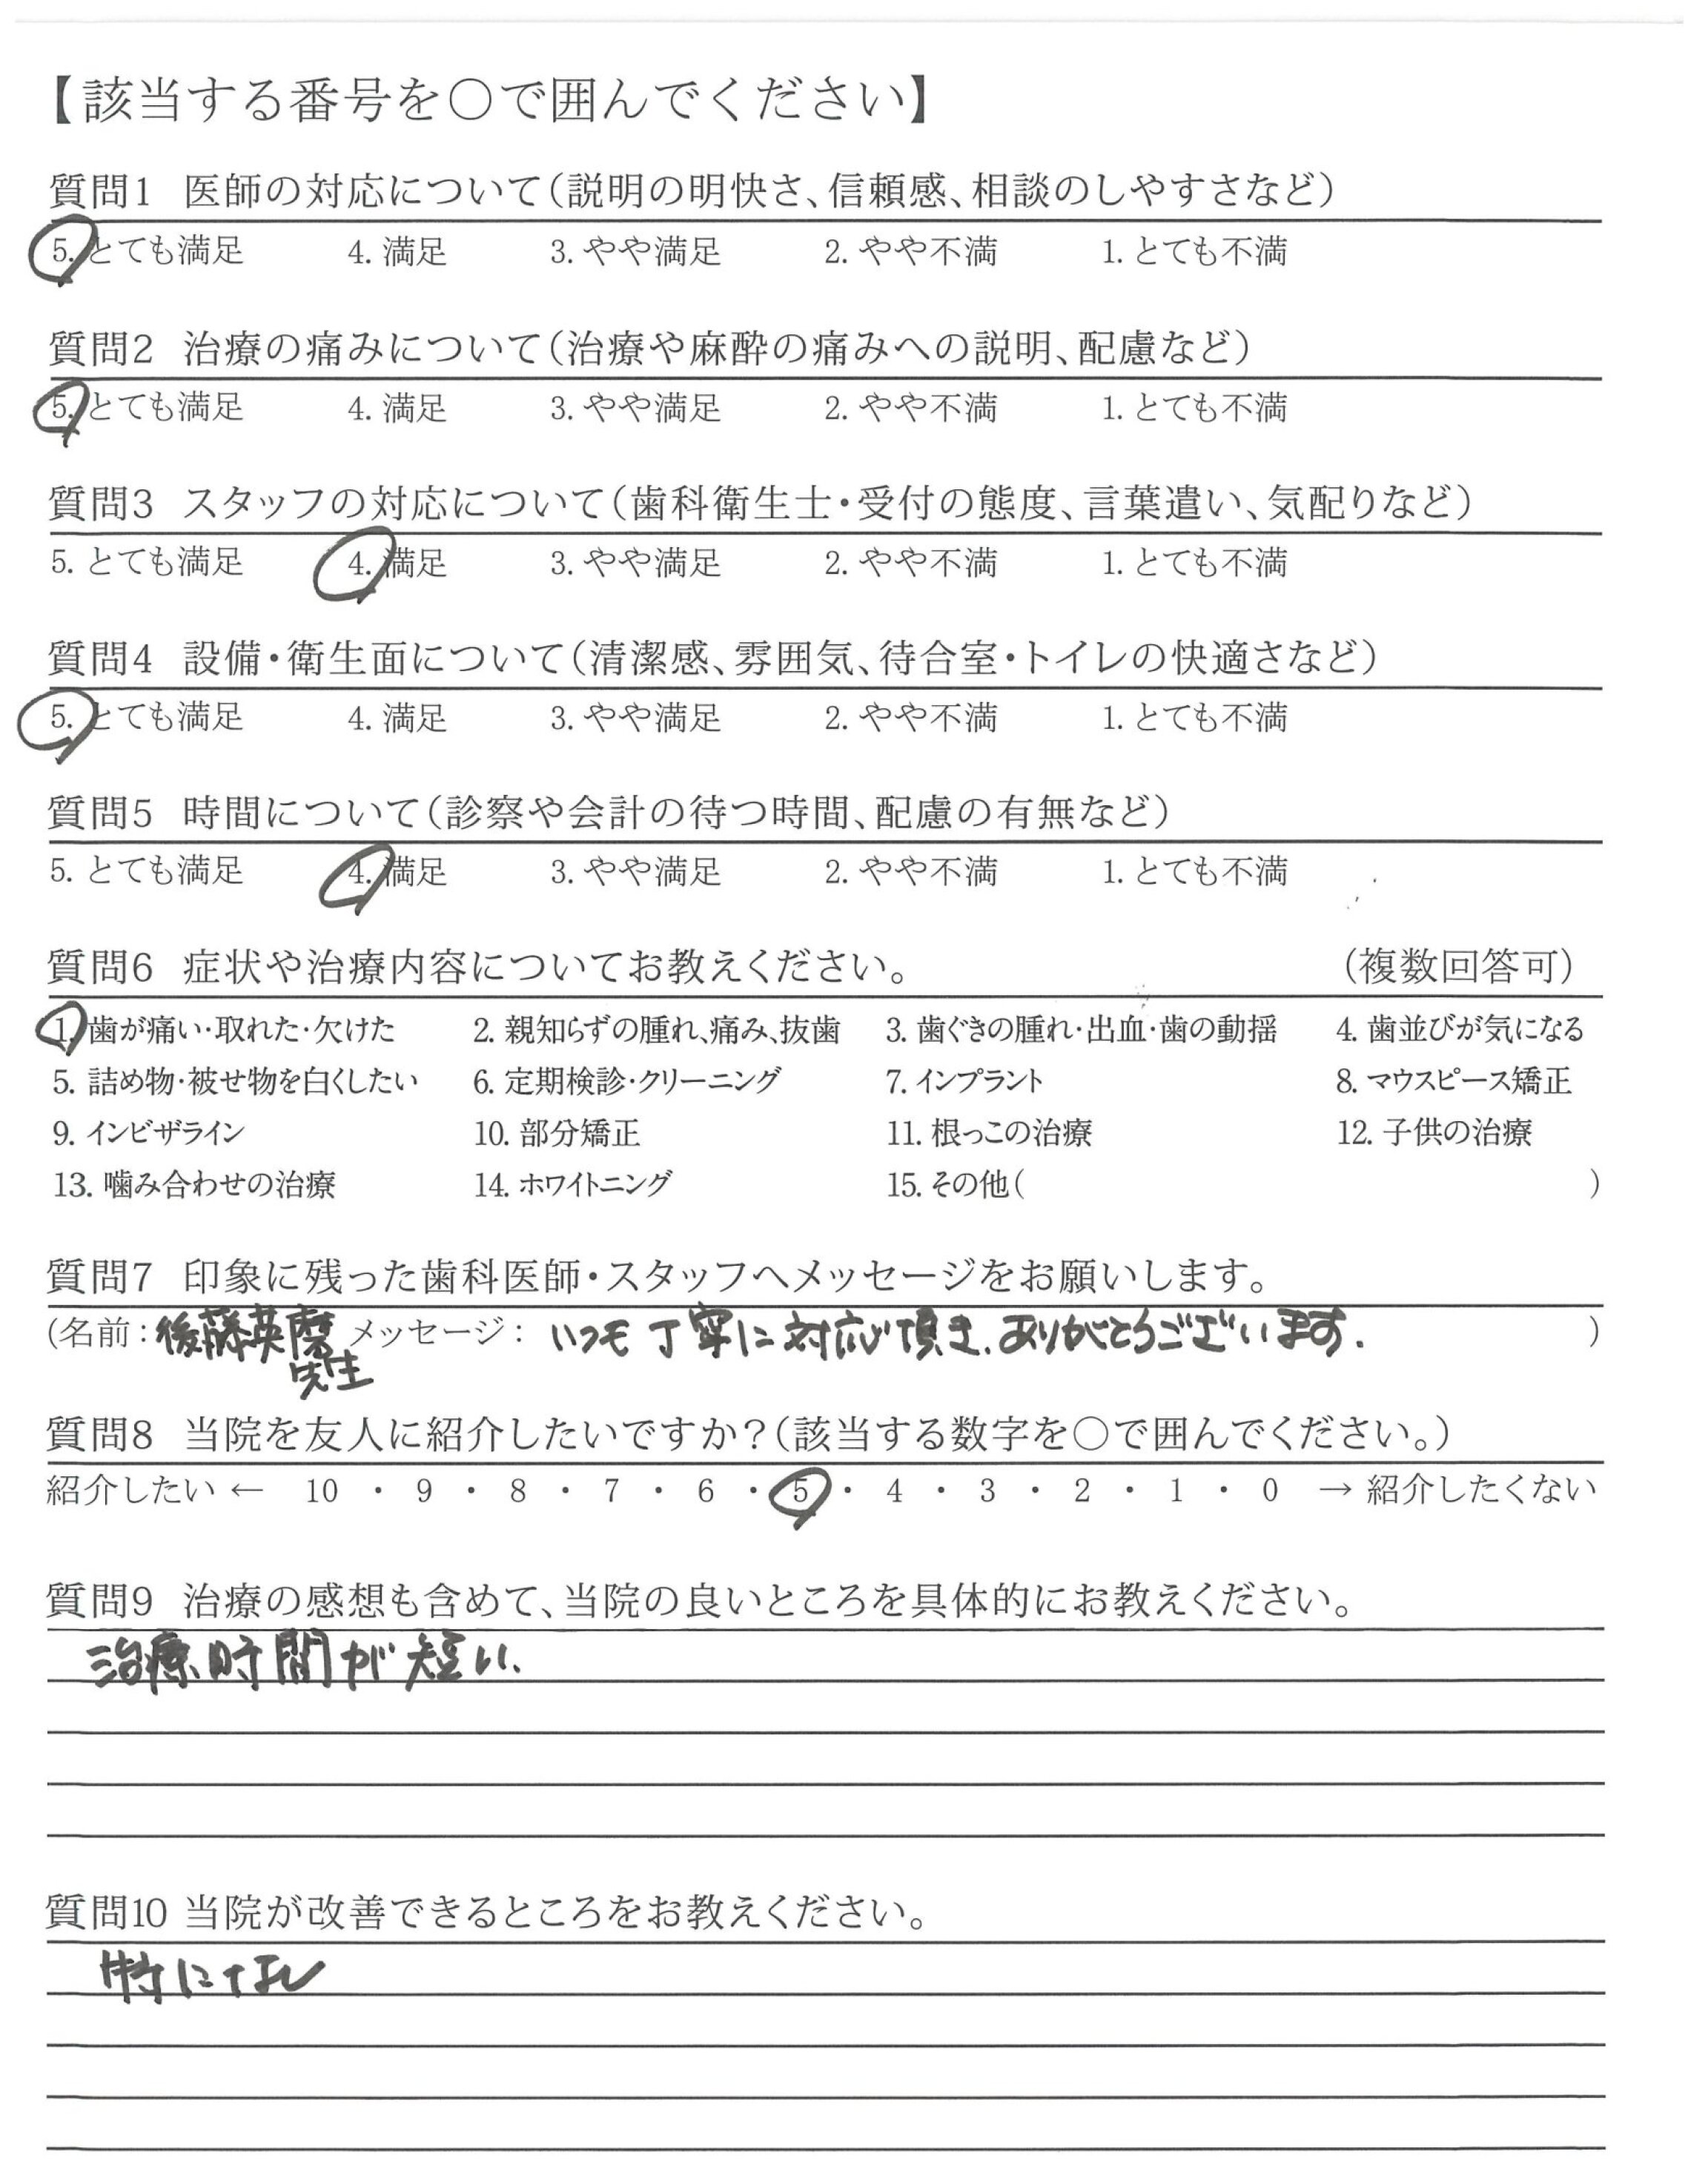 【該当する番号を〇で囲んでください】
質問1 医師の対応について(説明の明快さ、信頼感、相談のしやすさなど)
5. とても満足 4. 満足 3. やや満足 2. やや不満 1. とても不満
質問2 治療の痛みについて(治療や麻酔の痛みへの説明、配慮など)
5. とても満足 4. 満足 3. やや満足 2. やや不満 1. とても不満
質問3 スタッフの対応について(歯科衛生士・受付の態度、言葉遣い、気配りなど)
5. とても満足 4. 満足 3. やや満足 2. やや不満 1. とても不満
質問4 設備・衛生面について(清潔感、雰囲気、待合室・トイレの快適さなど)
5. とても満足 4. 満足 3. やや満足 2. やや不満 1. とても不満
質問5 時間について(診察や会計の待つ時間、配慮の有無など)
5. とても満足 4. 満足 3. やや満足 2. やや不満 1. とても不満
質問6 症状や治療内容についてお教えください。 (複数回答可)
1. 歯が痛い・取れた・欠けた 2. 親知らずの腫れ、痛み、抜歯 3. 歯ぐきの腫れ・出血・歯の動揺 4. 歯並びが気になる
5. 詰め物・被せ物を白くしたい 6. 定期検診・クリーニング 7. インプラント 8. マウスピース矯正
9. インビザライン 10. 部分矯正 11. 根っこの治療 12. 子供の治療
13. 噛み合わせの治療 14. ホワイトニング 15. その他( )
質問7 印象に残った歯科医師・スタッフへメッセージをお願いします。
(名前:後藤英磨先生 メッセージ: いつも丁寧に対応頂き、ありがとうございます. )
質問8 当院を友人に紹介したいですか?(該当する数字を〇で囲んでください。)
紹介したい ← 10 ・ 9 ・ 8 ・ 7 ・ 6 ・ 5 ・ 4 ・ 3 ・ 2 ・ 1 ・ 0 → 紹介したくない
質問9 治療の感想も含めて、当院の良いところを具体的にお教えください。
治療時間が短い.
質問10 当院が改善できるところをお教えください。
特になし